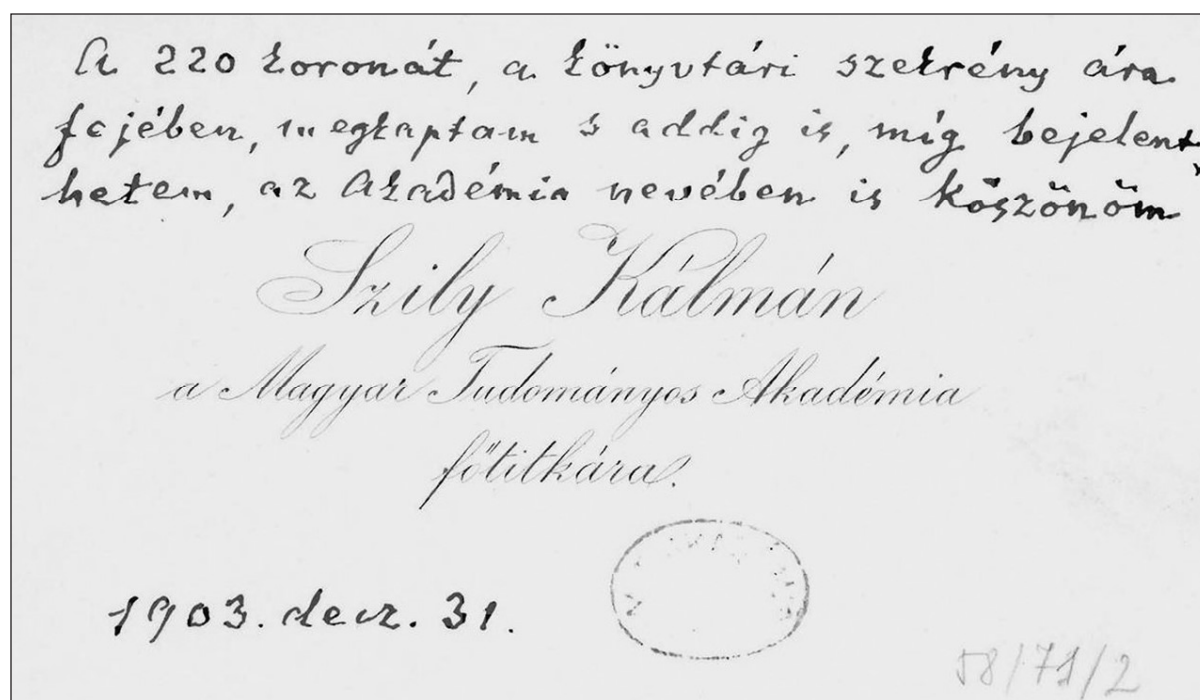 A 220 koronát, a könyvtári szekrény ára
fejében, megkaptam s addig is, míg bejelent,
hetem, az Akadémia nevében is köszönöm
Szily Kálmán
a Magyar Tudományos Akadémia
főtitkára.
1903. decz. 31.
58/71/2